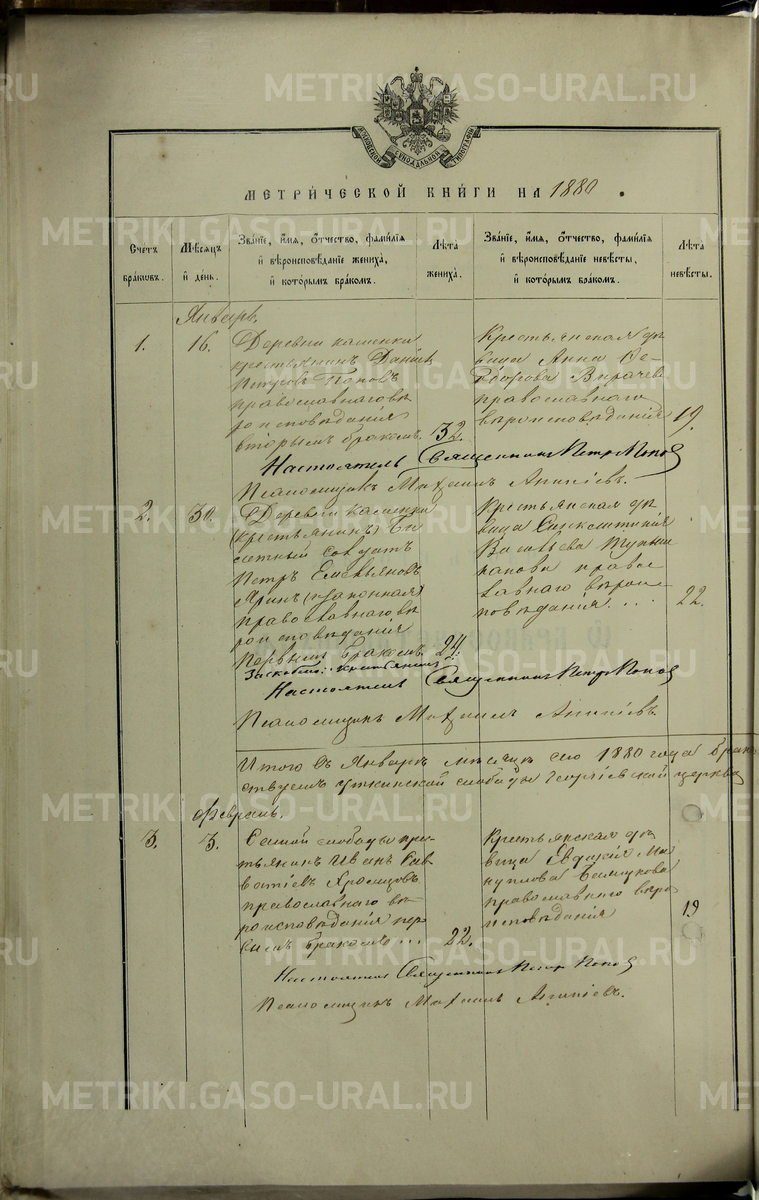 METRIKI.GASO-URAL.RU
МОСКОВСКОЙ СѴНОДАЛЬНОЙ ТИПОГРАФІИ
МЕТРИЧЕСКОЙ КНИГИ НА 1880.
Счетъ браковъ.
Мѣсяцъ и день.
Званіе, имя, отчество, фамилія
и вѣроисповѣданіе жениха,
и которымъ бракомъ.
Лѣта жениха.
Званіе, имя, отчество, фамилія
и вѣроисповѣданіе невѣсты,
и которымъ бракомъ.
Лѣта невѣсты.
Январь.
1. 16.
Деревни Каменки
крестьянинъ Даніилъ
Петровъ Поповъ
православнаго вѣ
роисповѣданія
вторымъ бракомъ. 32.
Крестьянская дѣ
вица Анна Ѳе
православнаго
вѣроисповѣданія 19.
Настоятель Священникъ Петръ Поповъ
Псаломщикъ Михаилъ
2. 30.
Деревни Каменки
(крестьянинъ) Би
летный солдатъ
Петръ Емельяновъ
православнаго вѣ
роисповѣданія
первымъ бракомъ. 24.
Крестьянская дѣ
вица Синклитикія
Васильева
православнаго вѣроис
повѣданія ... 22.
крестьянинъ
Настоятель Священникъ Петръ Поповъ
Псаломщикъ Михаилъ
Итого въ Январѣ мѣсяцѣ сего 1880 года
Уткинской слободы Георгіевской церкви
Февраль.
3. 3.
Самой слободы кре
стьянинъ Иванъ Сав
ватіевъ
православнаго вѣ
роисповѣданія пер
вымъ бракомъ ... 22.
Крестьянская дѣ
вица Евдокія Ма
нуилова
православнаго вѣро
исповѣданія 19
Настоятель Священникъ Петръ Поповъ
Псаломщикъ Михаилъ